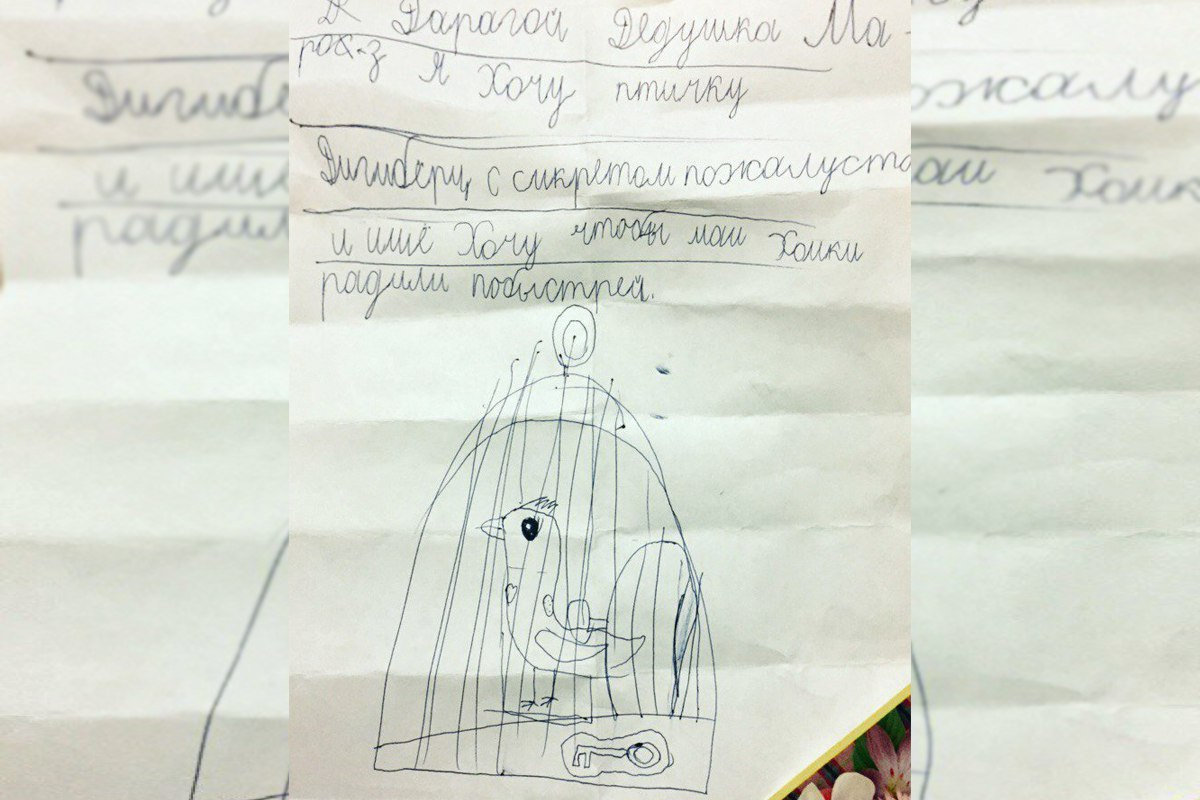 Дарагой Дедушка Ма-
роз Я Хочу птичку
Дигиберц с сикретом пожалуста
и ишё Хочу чтобы маи Хомки
радили побыстрей.